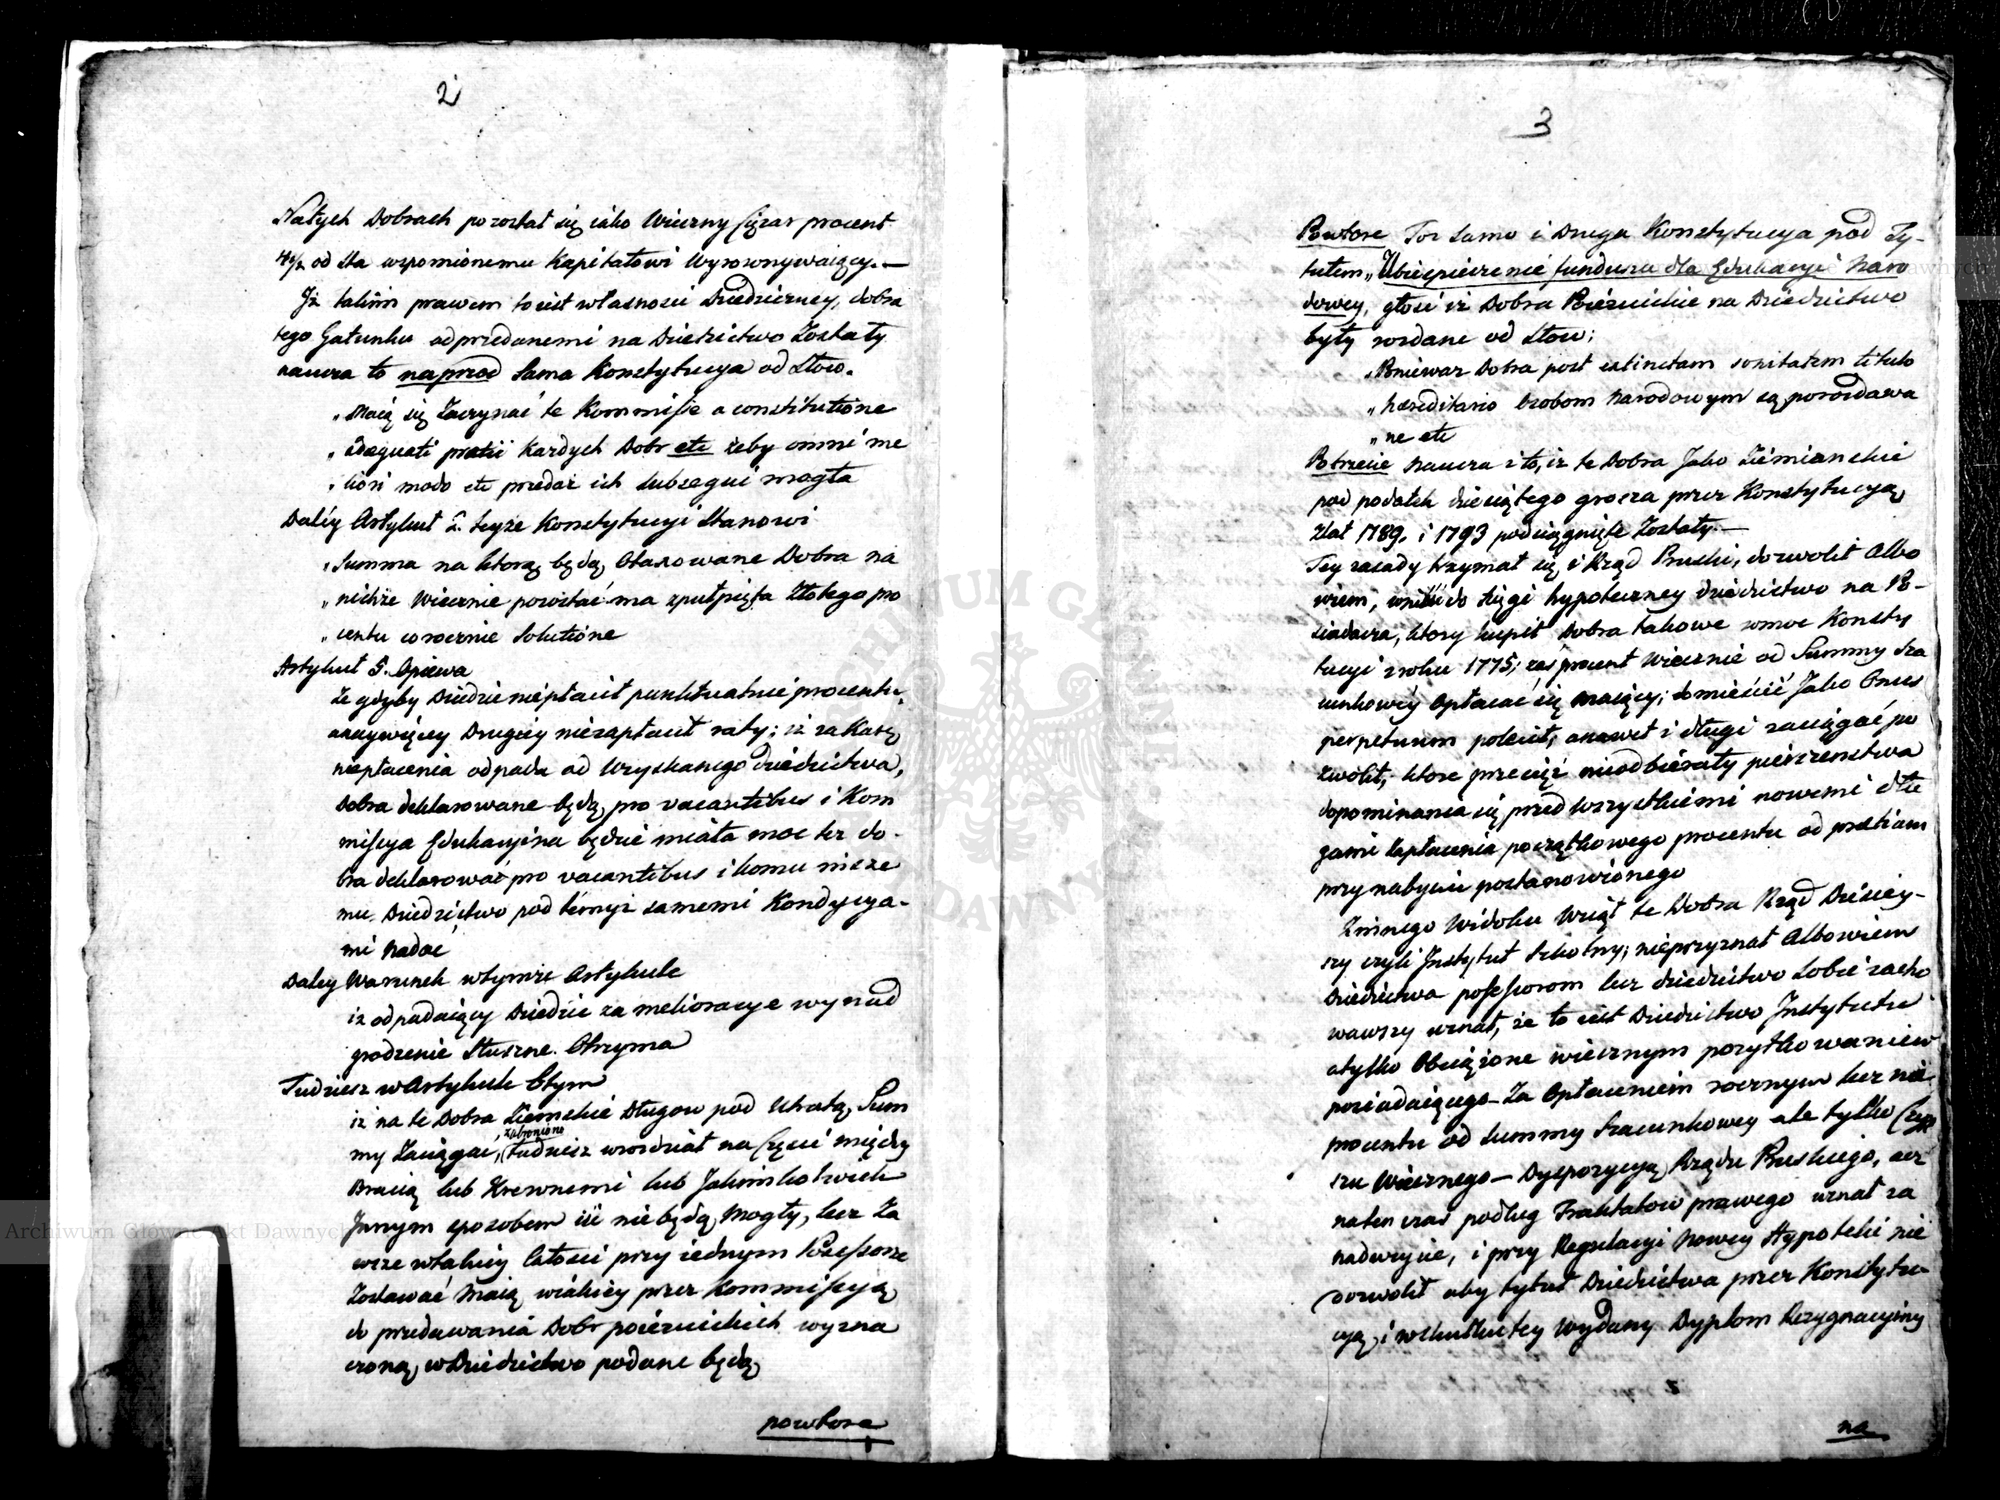 2
Natych Dobrach pozostał się iako Wieczny Cięzar procent
4½ od sta wspomionemu Kapitałowi Wyrownywaiący. —
Iż takim prawem to iest własnosci Dziedziczney, dobra
tego Gatunku odprzedanemi na Dziedzictwo Zostały
naucza to naprzod Sama Konstytucya od Słow.
„ Maią się Zaczynać te Kommissie a constitutione
„ adequati pretii Kazdych Dobr etc żeby omni me
„ liori modo etc przedaż ich subsequi mogła
Daley Artykuł 2. teyże Konstytucyi Stanowi
„ Summa na ktorą będą Otaxowane Dobra na
„ nichże Wiecznie pozostać ma zpułpięta Złotego pro
„ centu corocznie Solutione
Artykuł 5. Opiewa
Że gdyby Dziedzic niepłacił punktualnie procentu,
anaywięcy Drugiey niezapłacił raty; iż za Karę
niepłacenia odpada od Uzyskanego Dziedzictwa,
Dobra deklarowane będą pro vacantibus i Kom
missya Edukacyina będzie miała moc tez do-
bra deklarować pro vacantibus i komu insze
mu Dziedzictwo pod temyż samemi Kondycya-
mi nadać
Daley Warunek wtymże Artykule
iż odpadaiący Dziedzic za melioracye wynad
grodzenie Słuszne Otrzyma
Tudziesz w Artykule Otym
iż na te Dobra Ziemskie Długow pod Utratą Sum
zabroniono
my Zaciągac, tudziesz wrozdział na Częsci między
Bracią lub Krewnemi lub Jakimkolwiek
Innym sposobem iść nie będą Mogły, lecz Za
wsze wtakiey Całosci przy iednym Possessorze
Zostawać Maią wiakiey przez Kommissyą
do przedawania Dobr poiezuickich wyzna
czoną w Dziedzictwo podane będą
powtore
3
Powtore Toz samo i Druga Konstytucya pod Ty-
tułem „Ubezpieczenie funduszu dla Edukacyi Naro
dowey, głosi iż Dobra Poiezuickie na Dziedzictwo
były rozdane od słow;
„ Ponieważ Dobra post extinctam societatem titulo
„ haereditario Osobom Narodowym są porozdawa
„ ne etc
Potrzecie naucza i to, iz te Dobra Jako Ziemianskie
pod podatek dziesiątego grosza przez Konstytucyą
zlat 1789. i 1793 podciągnięte Zostały. —
Tey zasady trzymał się i Rząd Pruski, dozwolił Albo
wiem, wnieść do Xięgi hypoteczney dziedzictwo na Po-
siadacza, ktory kupił Dobra takowe wmoc Konsty
tucyi zroku 1775; zaś procent Wiecznie od Summy Sza
cunkowey Opłacać się maiący; domieścić Jako Onus
perpetuum polecił, anawet i długi zaciągać po
zwolił, ktore przecięż nieodbierały pierszenstwa
dopominania się przed wszystkiemi nowemi dłu
gami Zapłacenia początkowego procentu od pretium
przy nabyciu postanowionego
Zinnego Widoku Wziął te Dobra Rząd Dzisiey-
szy czyli Instytut Szkolny; nieprzyznał Albowiem
Dziedzictwa possessorom lecz dziedzictwo Sobie zacho
wawszy uznał, że to iest Dziedzictwo Instytutu
atylko Obciążone wiecznym pozytkowaniem
posiadaiącego Za Opłaceniem rocznym lecz nie
procentu od Summy Szacunkowey ale tylko Czyn
szu Wiecznego — Dyspozycyą Rządu Pruskiego, acz
naten czas podług Traktatow prawego uznał za
nadużycie, i przy Regulacyi Nowey Hypoteki nie
dozwolił aby tytuł Dziedzictwa przez Konstytu-
cyą, i wskutku tey Wydany Dyplom Rezygnacyiny
na